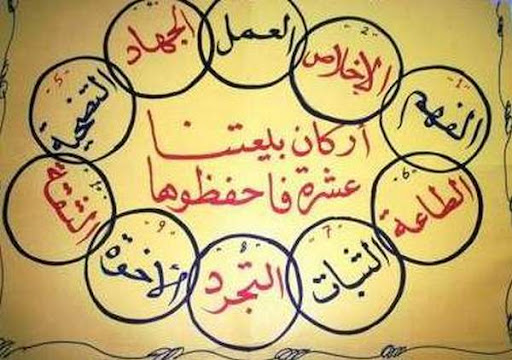 أركان بيعتنا
عشرة فاحفظوها
-1-
الفهم
-2-
الإخلاص
العمل
الجهاد
-5-
التضحية
-6-
الطاعة
-7-
الثبات
-8-
التجرد
-9-
الأخوة
-10-
الثقة